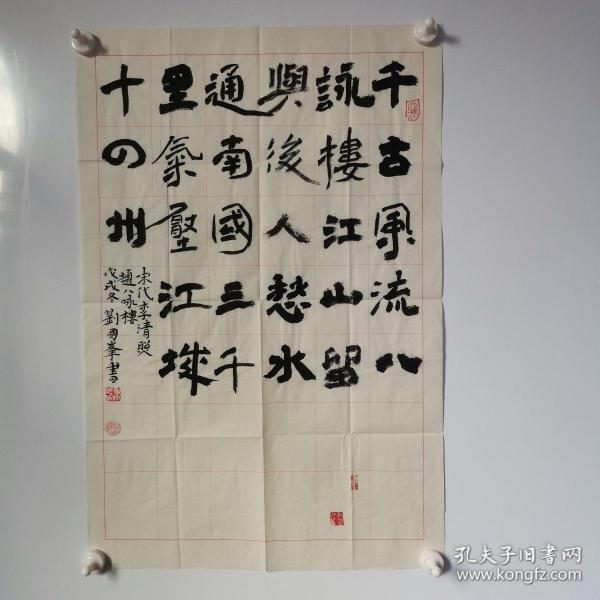 千古風流八
詠樓江山留
與後人愁水
通南國三千
里氣壓江城
十四州
宋代李清照
題八咏樓
戊戌冬劉國峯書
孔夫子旧书网
www.kongfz.com